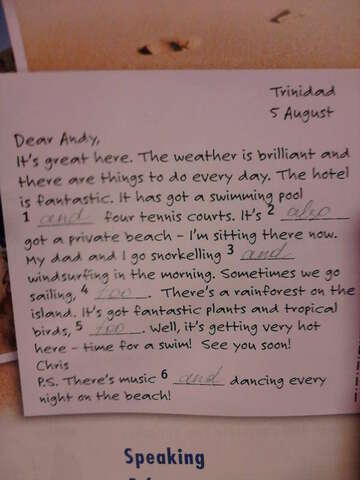 Trinidad
5 August
Dear Andy,
It's great here. The weather is brilliant and
there are things to do every day. The hotel
is fantastic. It has got a swimming pool
1 and four tennis courts. It's 2 also
got a private beach – I'm sitting there now.
My dad and I go snorkelling 3 and
windsurfing in the morning. Sometimes we go
sailing, 4 too. There's a rainforest on the
island. It's got fantastic plants and tropical
birds, 5 too. Well, it's getting very hot
here – time for a swim! See you soon!
Chris
P.S. There's music 6 and dancing every
night on the beach!
Speaking